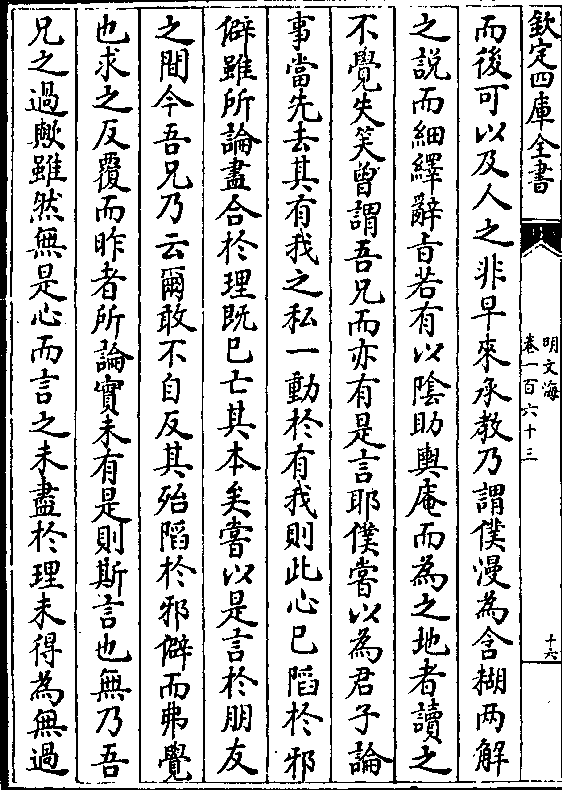 欽定四庫全書
明文海
卷一百六十三
十六
而後可以及人之非早來承教乃謂僕漫為含糊两解
之說而細繹辭旨若有以陰助輿庵而為之地者讀之
不覺失笑曾謂吾兄而亦有是言耶僕嘗以為君子論
事當先去其有我之私一動於有我則此心已陷於邪
僻雖所論盡合於理既已亡其本矣嘗以是言於朋友
之間今吾兄乃云爾敢不自反其殆陷於邪僻而弗覺
也求之反覆而昨者所論實未有是則斯言也無乃吾
兄之過歟雖然無是心而言之未盡於理未得為無過